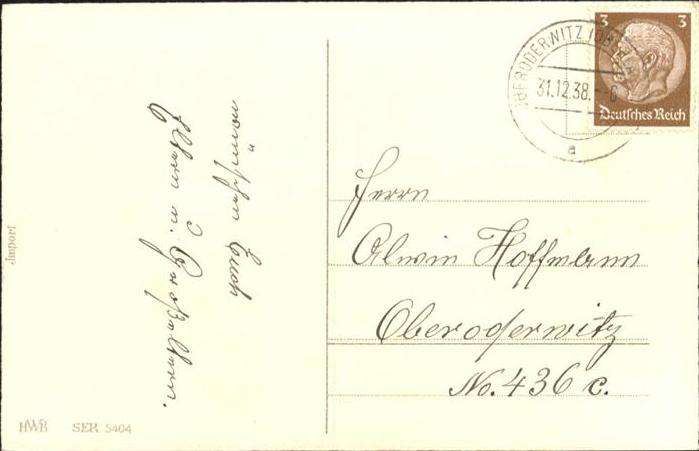 wünschen Euch
Eltern u. Großeltern.
OBERODERWITZ
31.12.38.
a
3 3
Deutsches Reich
Herrn
Alwin Hoffmann
Oberoderwitz
No. 436 c.
Import
HWB SER 5404